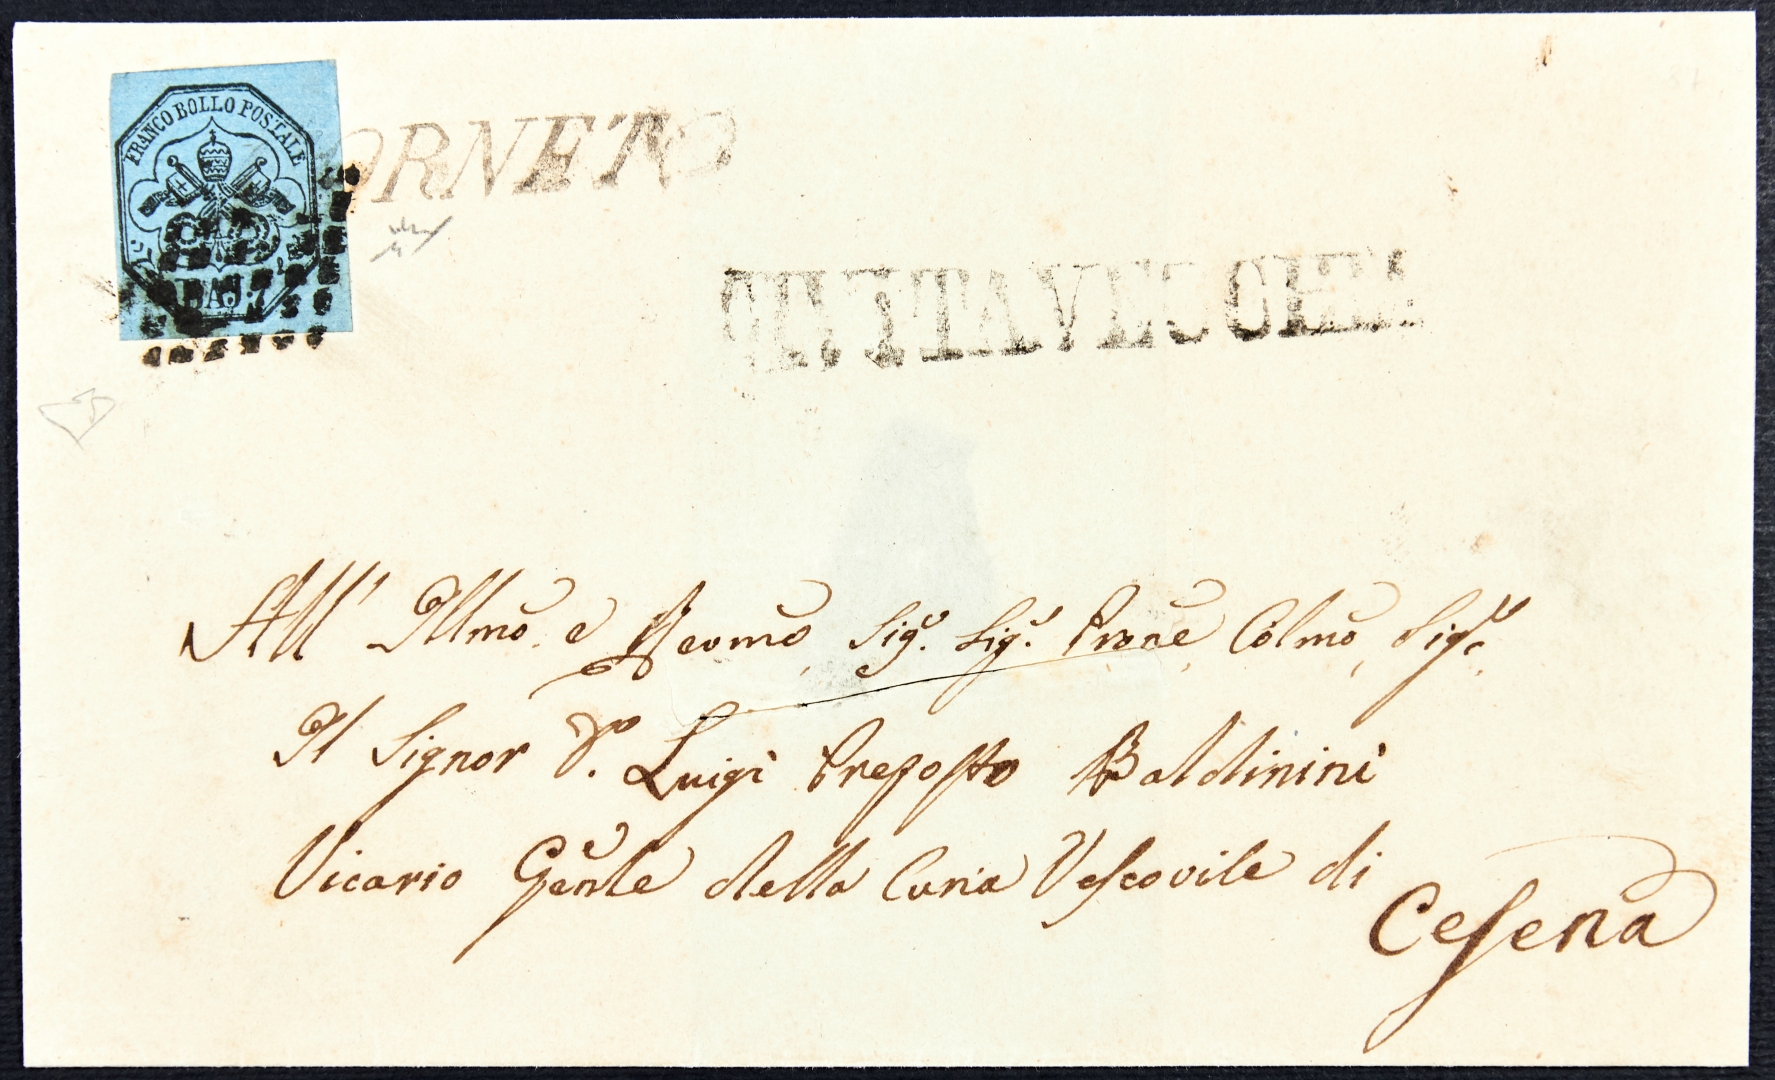 FRANCO BOLLO POSTALE
BAJ. 7
ORNETO
CIVITAVECCHIA
All' Illmo e Revmo Sigr. Sigr. Prone Colmo, Sigr.
Il Signor Dn. Luigi Preposto Baldinini
Vicario Genle della Curia Vescovile di
Cesena